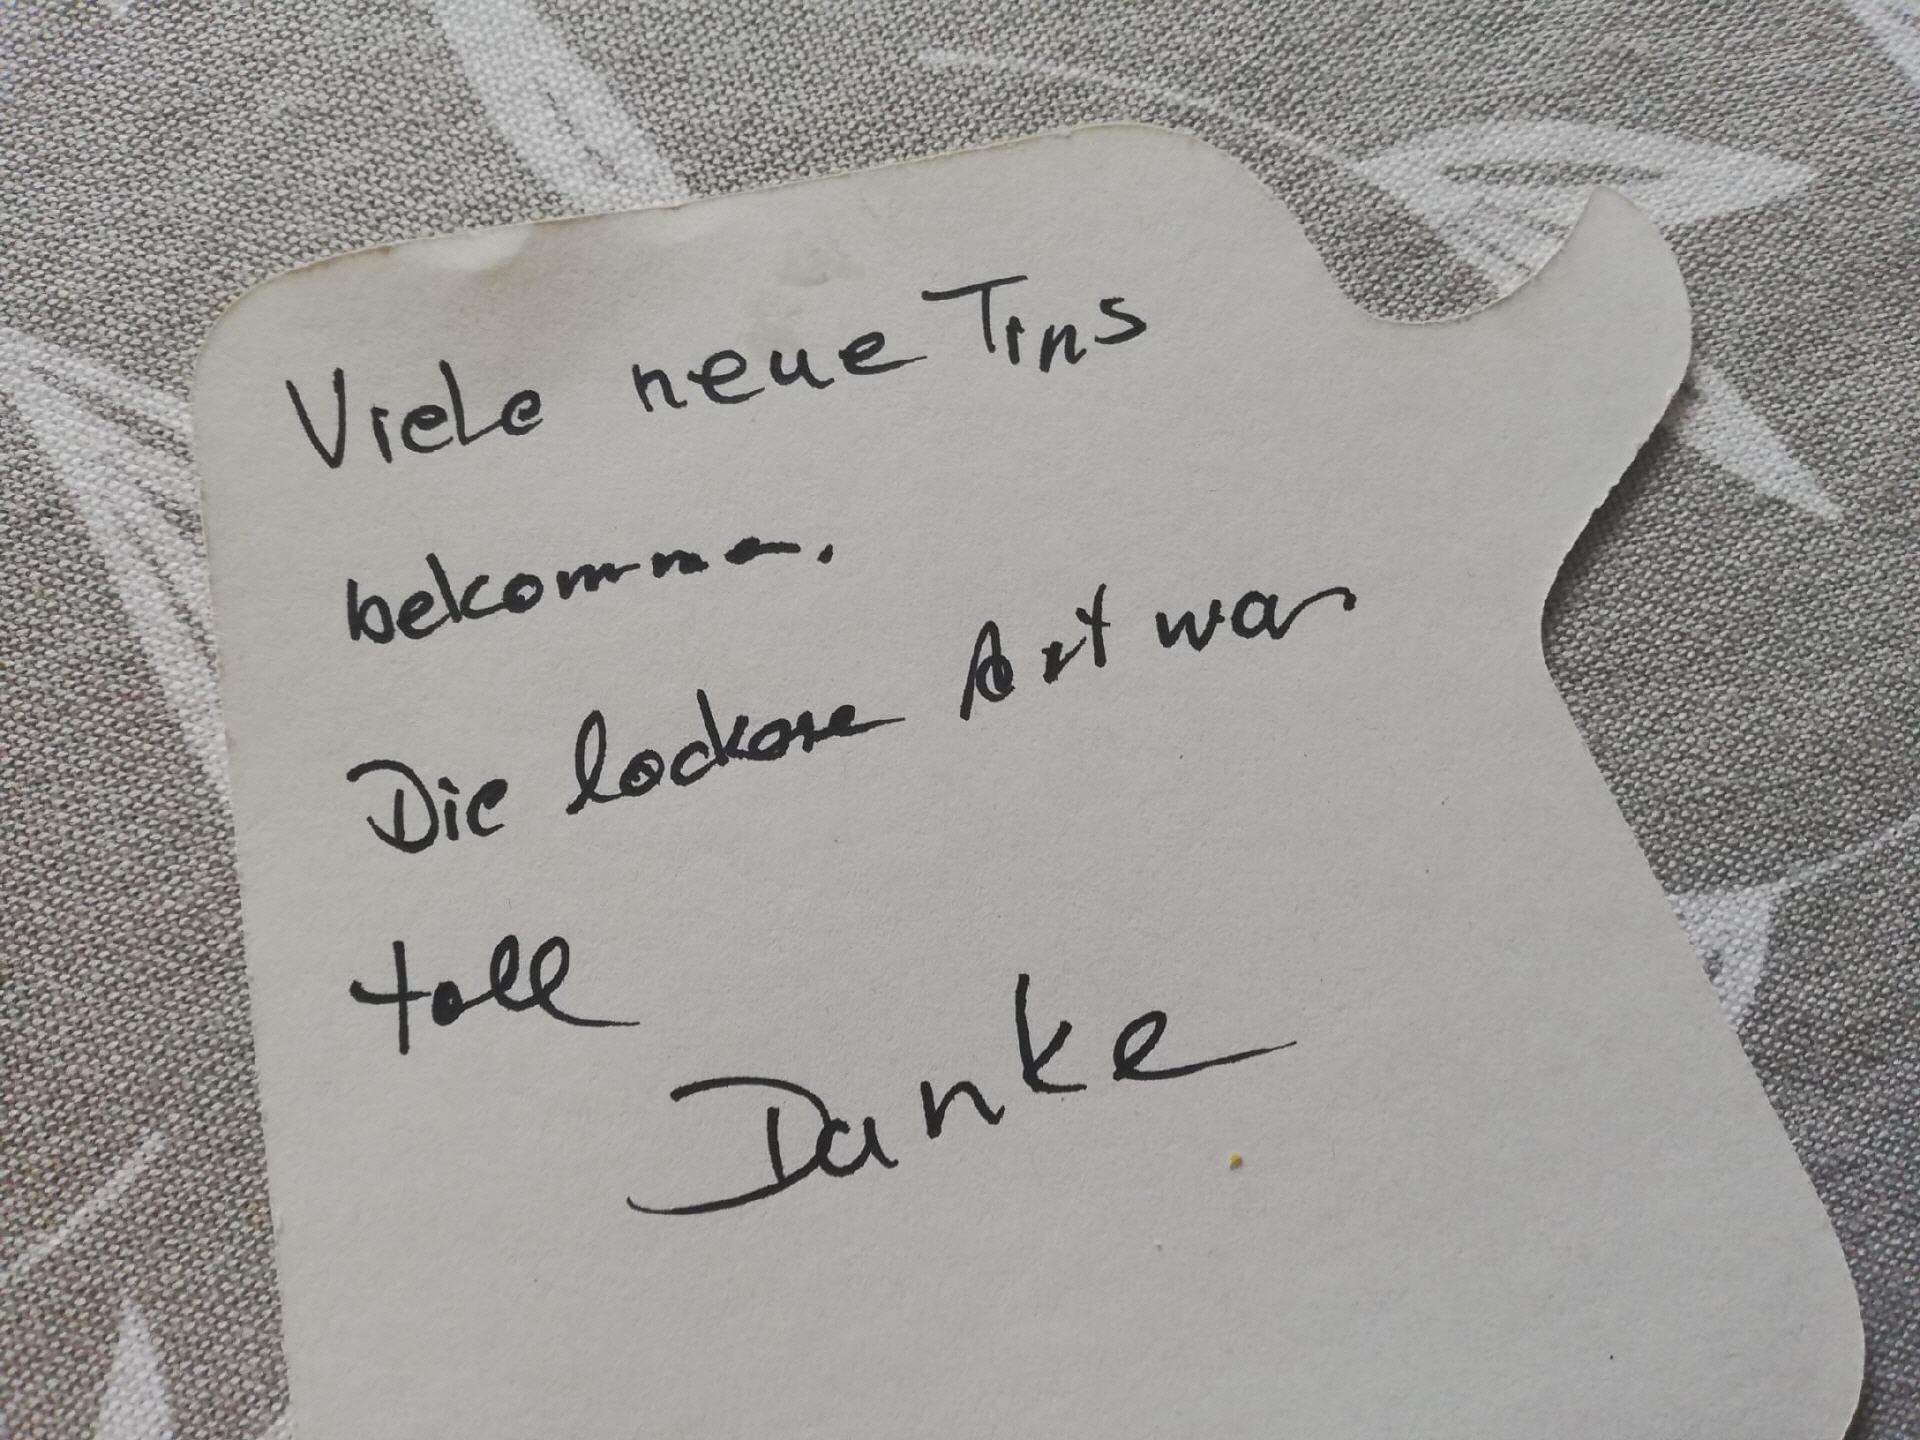 Viele neue Tips
bekommen.
Die lockere Art war
toll
Danke